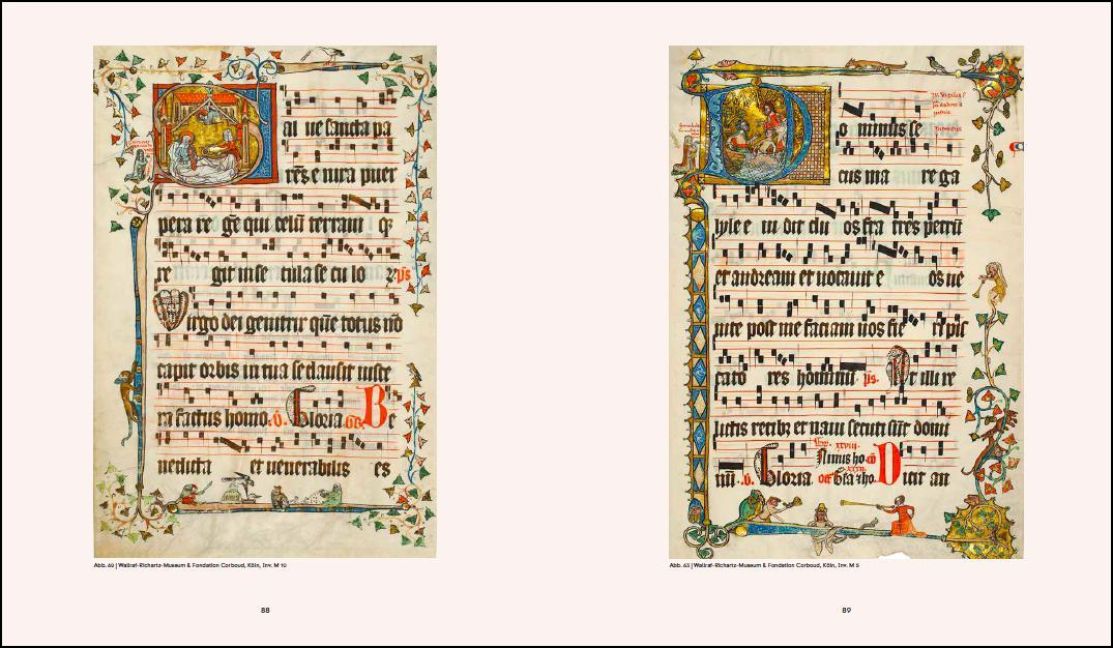 ai ue sancta pa
rēs e nixa puer
pera re gē qui celū terram q;
re git in se cula se cu lo r ps
Virgo dei genitrix quē totus nō
capit orbis in tua se clausit uisce
ra factus homo. v. Gloria oc. Be
nedicta et uenerabilis es
Abb. | Wallraf-Richartz-Museum & Fondation Corboud, Köln, Inv. M 10
88
Do minus se
cus ma re ga
lyle e ui dit du os fra tres petrū
et andream et uocauit e os ue
nite post me faciam uos fie ri pis
cato res hominū. ps. At illi re
lictis retibz et naui secuti sūt domi
nū. v. Gloria Dicit an
Abb. | Wallraf-Richartz-Museum & Fondation Corboud, Köln, Inv. M 5
89